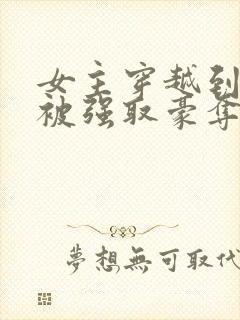 女主穿越到
被强取豪夺
夢想無可取代